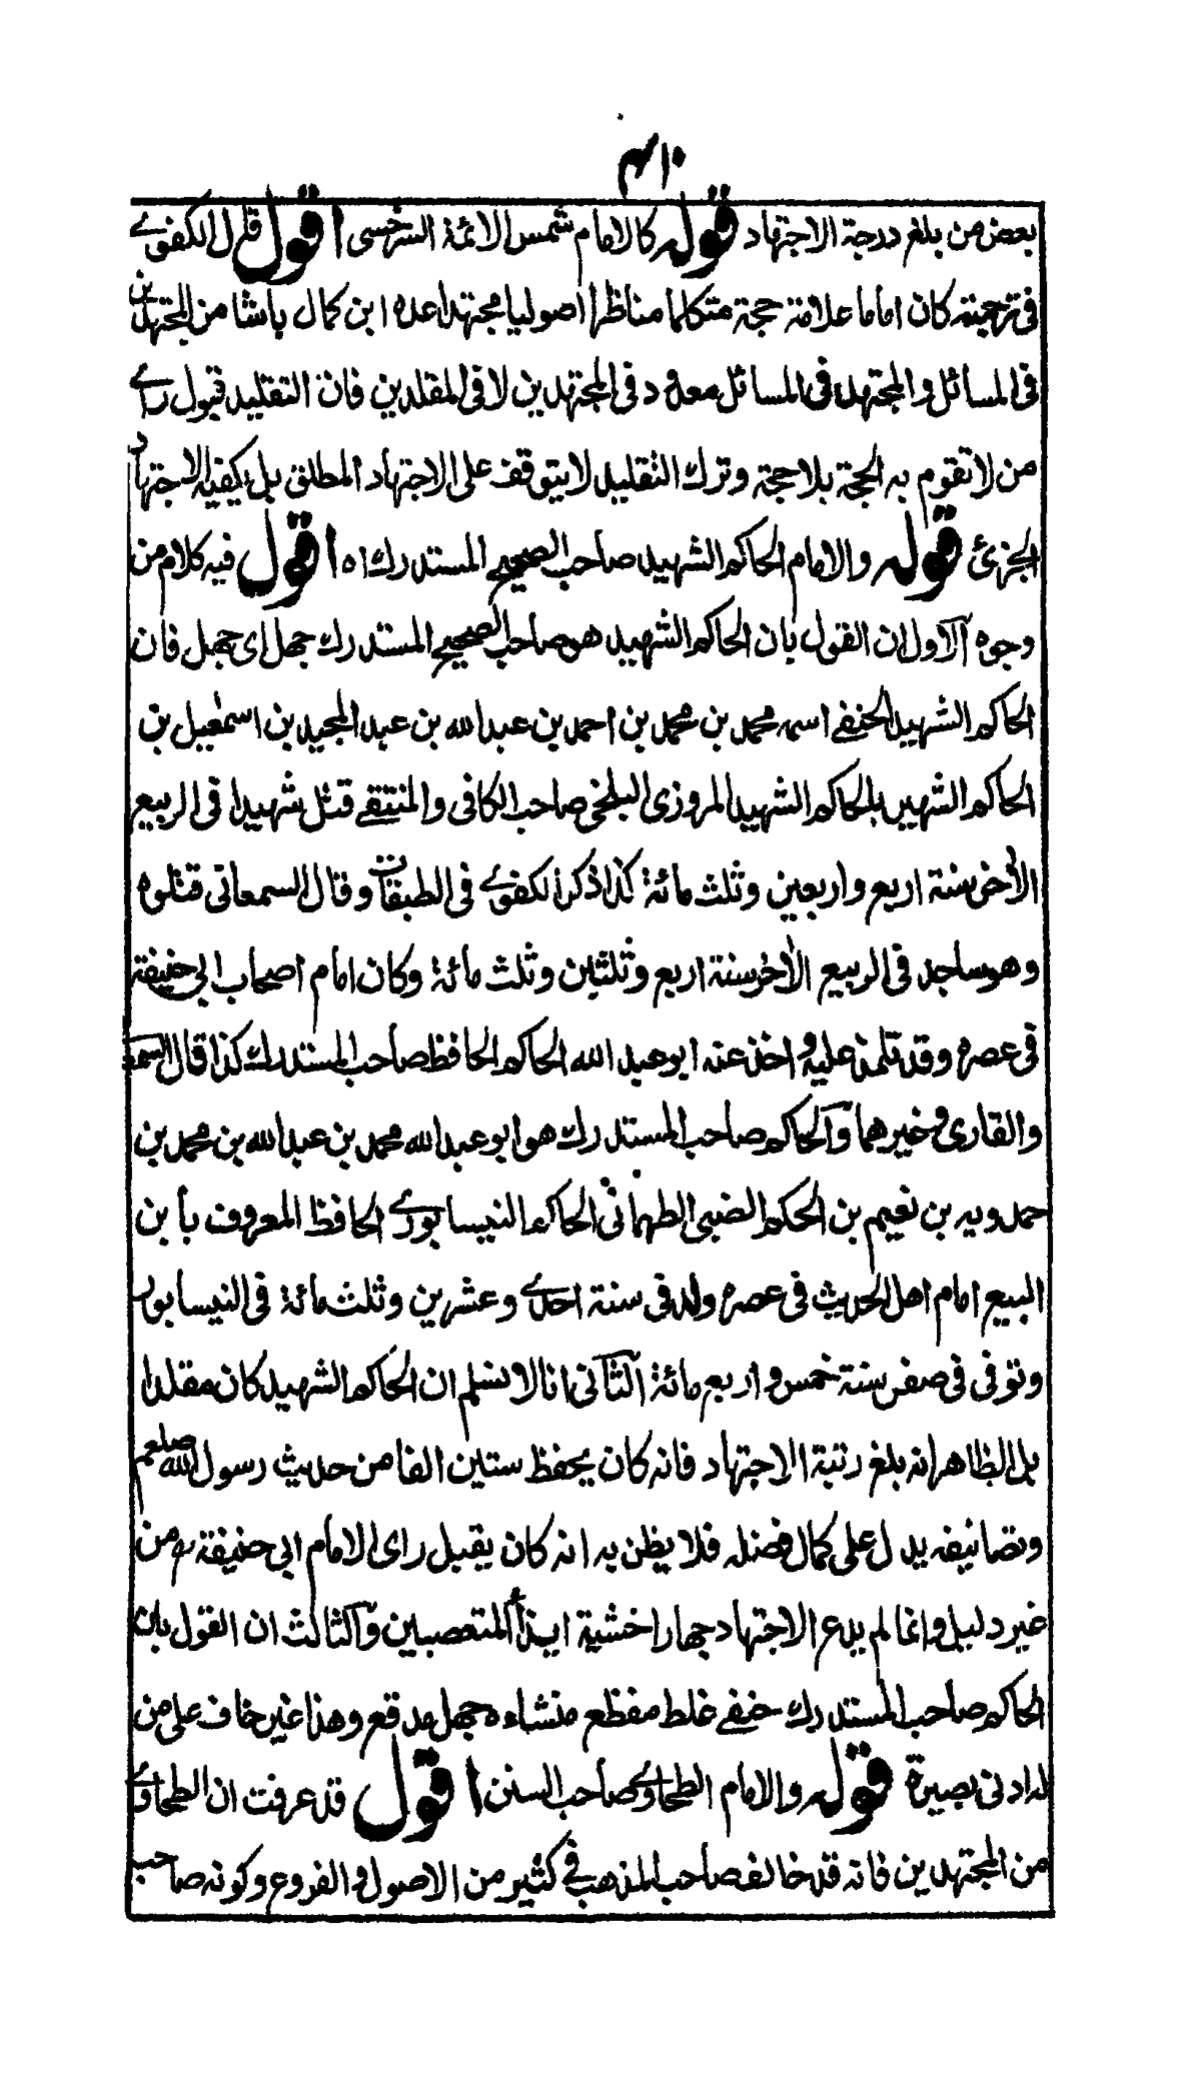 بعض من بلغ درجة الاجتهاد قوله كالامام شمس الائمة السرخسى اقول قال الكفوى
فى ترجمته كان اماما علامة حجة متكلما مناظرا اصوليا مجتهدا عده ابن كمال باشا من المجتهدين
فى المسائل والمجتهد فى المسائل معدود فى المجتهدين لا فى المقلدين فان التقليد قبول راى
من لا تقوم به الحجة بلا حجة وترك التقليد لا يتوقف على الاجتهاد المطلق بل يكفيه الاجتهاد
الجزئ قوله والامام الحاكم الشهيد صاحب الصحيح المستدرك اه اقول فيه كلام من
وجوه الاول ان القول بان الحاكم الشهيد هو صاحب الصحيح المستدرك جهل اى جهل فان
الحاكم الشهيد الحنفى اسمه محمد بن محمد بن احمد بن عبد الله بن عبد المجيد بن اسمعيل بن
الحاكم الشهير بالحاكم الشهيد المروزى البلخى صاحب الكافى والمنتقى قتل شهيدا فى الربيع
الآخر سنة اربع واربعين وثلث مائة كذا ذكر الكفوى فى الطبقات وقال السمعانى قتلوه
وهو ساجد فى الربيع الآخر سنة اربع وثلثين وثلث مائة وكان امام اصحاب ابى حنيفة
فى عصره وقد تلمذ عليه واخذ عنه ابو عبد الله الحاكم الحافظ صاحب المستدرك كذا قال السمعا
والقارى وغيرهما والحاكم صاحب المستدرك هو ابو عبد الله محمد بن عبد الله بن محمد بن
حمدويه بن نعيم بن الحكم الضبى الطهمانى الحاكم النيسابورى الحافظ المعروف بابن
البيع امام اهل الحديث فى عصره ولد فى سنة احدى وعشرين وثلث مائة فى النيسابور
وتوفى فى صفر سنة خمس واربع مائة الثانى انا لا نسلم ان الحاكم الشهيد كان مقلدا
بل الظاهر انه بلغ رتبة الاجتهاد فانه كان يحفظ ستين الفا من حديث رسول الله صلعم
وتصانيفه يدل على كمال فضله فلا يظن به انه كان يقبل راى الامام ابى حنيفة رح من
غير دليل وانما لم يدع الاجتهاد جهارا خشية ايذاء المتعصبين والثالث ان القول بان
الحاكم صاحب المستدرك حنفى غلط مفظع منشاءه جهل مدقع وهذا غير خاف على من
له ادنى بصيرة قوله والامام الطحاوى صاحب السنن اقول قد عرفت ان الطحاوى
من المجتهدين فانه قد خالف صاحب المذهب فى كثير من الاصول والفروع وكونه صاحب